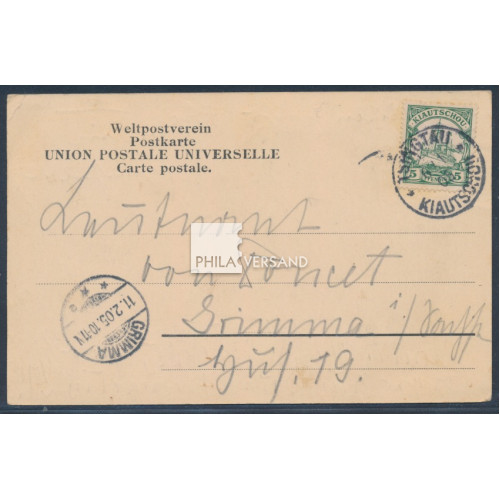 Weltpostverein
Postkarte
UNION POSTALE UNIVERSELLE
Carte postale.
KIAUTSCHOU
5 5
TSINGTAU
KIAUTSCHOU
Leutnant
PHILA VERSAND
von Poncet
Grimma i/Sachs
Hus. 19.
GRIMMA
11.2.05. 10-11V